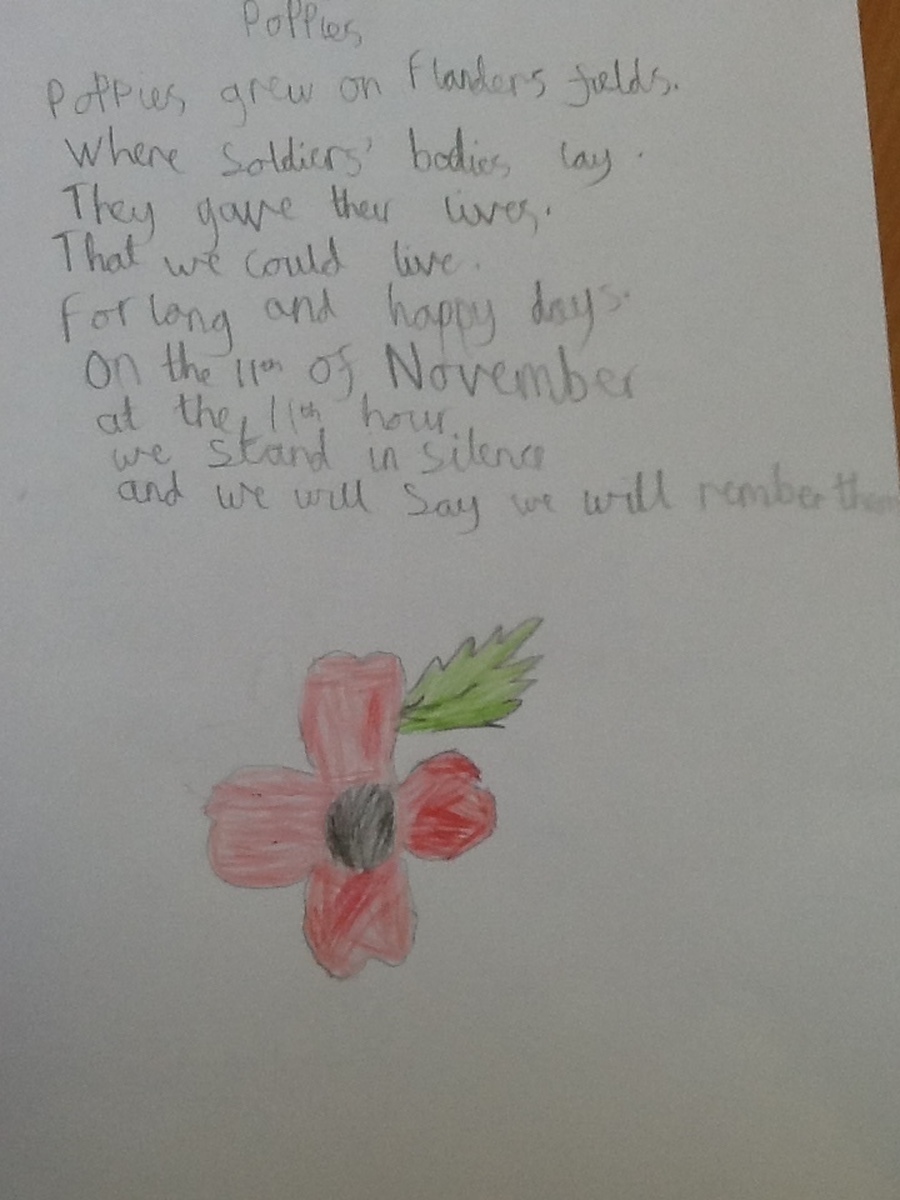 Poppies
Poppies grew on Flanders fields.
Where Soldiers' bodies lay.
They gave their lives.
That we could live.
For long and happy days.
On the 11th of November
at the 11th hour
we stand in silence
and we will say we will rember them